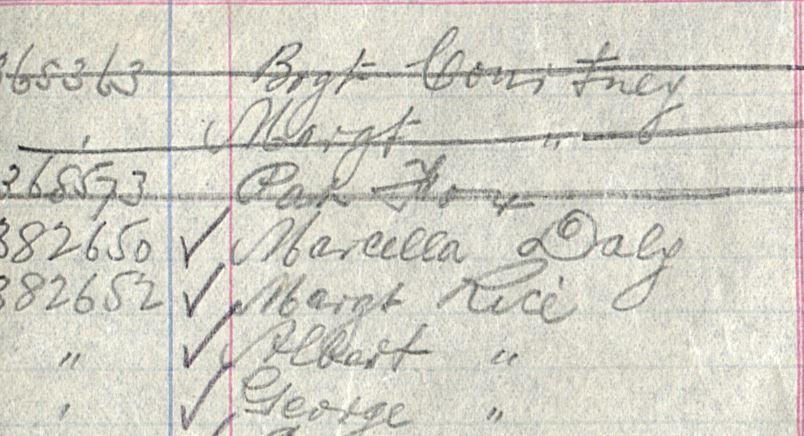 365363 Brgt Courtney
" Margt "
365593 Pat
382650 ✓ Marcella Daly
382652 ✓ Margt Rice
" ✓ Albert "
" ✓ George "